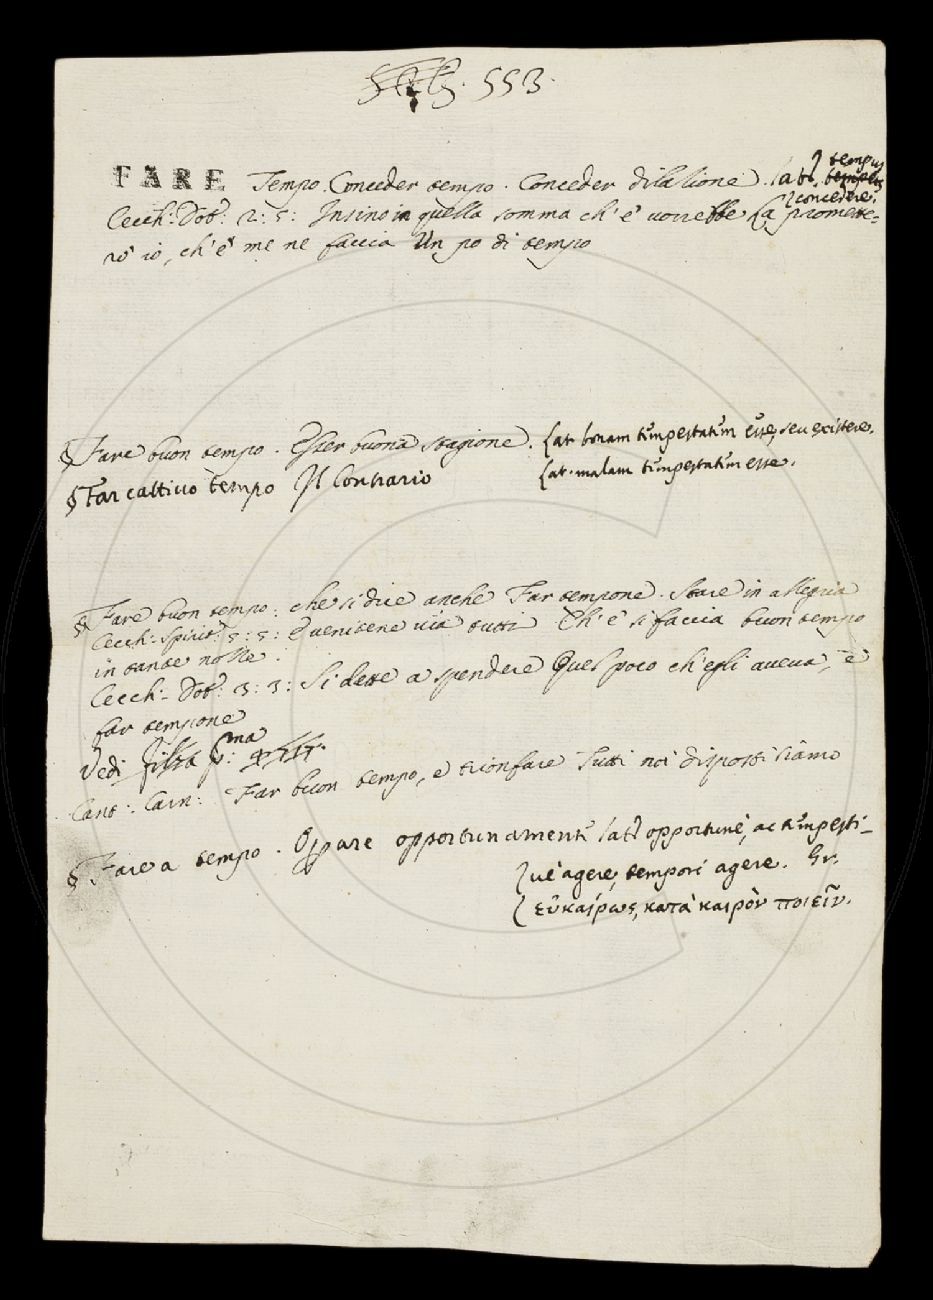 553.
FARE Tempo. Conceder tempo. Conceder dilazione. lat. tempus
concedere.
Cecch: Dot: 2: 5: Insino in quella somma ch'e' vorrebbe La promette=
rò io, ch'e' me ne faccia Un po di tempo
§ Fare buon tempo. Esser buona stagione. Lat. bonam tempestatem esse, seu existere.
§ Far cattivo tempo Il Contrario Lat. malam tempestatem esse.
§ Fare buon tempo: che si dice anche Far tempone. Stare in allegria
Cecch: Spirit: 5: 5: E venitene via tutti Ch'e' si faccia buon tempo
in tante nozze.
Cecch: Dot: 3: 3: Si dette a spendere Quel poco ch'egli aveva, e
far tempone
Vedi filza p.ma
Cant: Carn: Far buon tempo, e trionfare Tutti noi disposti siamo
§ Fare a tempo. Oprare opportunamente lat. opportunè, ac tempesti-
vè agere, tempori agere. Gr.
εὐκαίρως, κατὰ καιρὸν ποιεῖν.